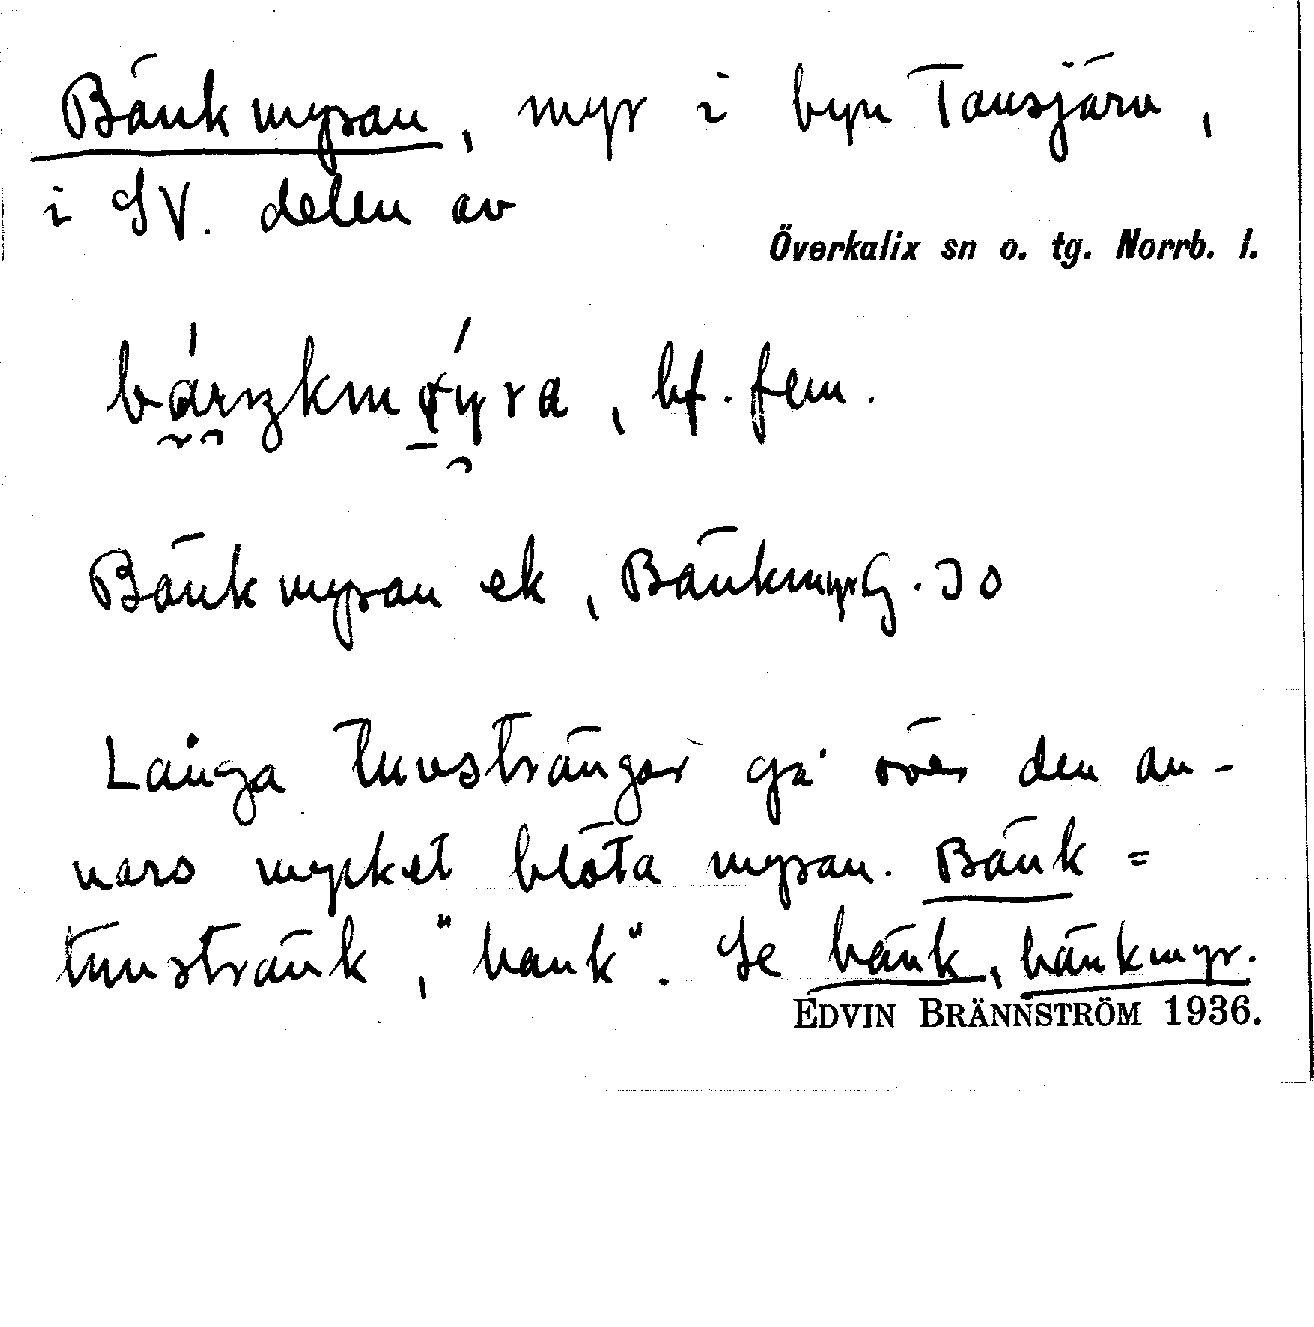 Bänkmyran, myr i byn Tansjärv,
i SV. delen av
Överkalix sn o. tg. Norrb. l.
bf. fem.
Bänkmyran ek, BänkmyrG. Jo
Långa tuvsträngar gå över den an-
nars mycket blöta myran. Bänk =
tuvstränk, "bank". Se bänk, bänkmyr.
EDVIN BRÄNNSTRÖM 1936.